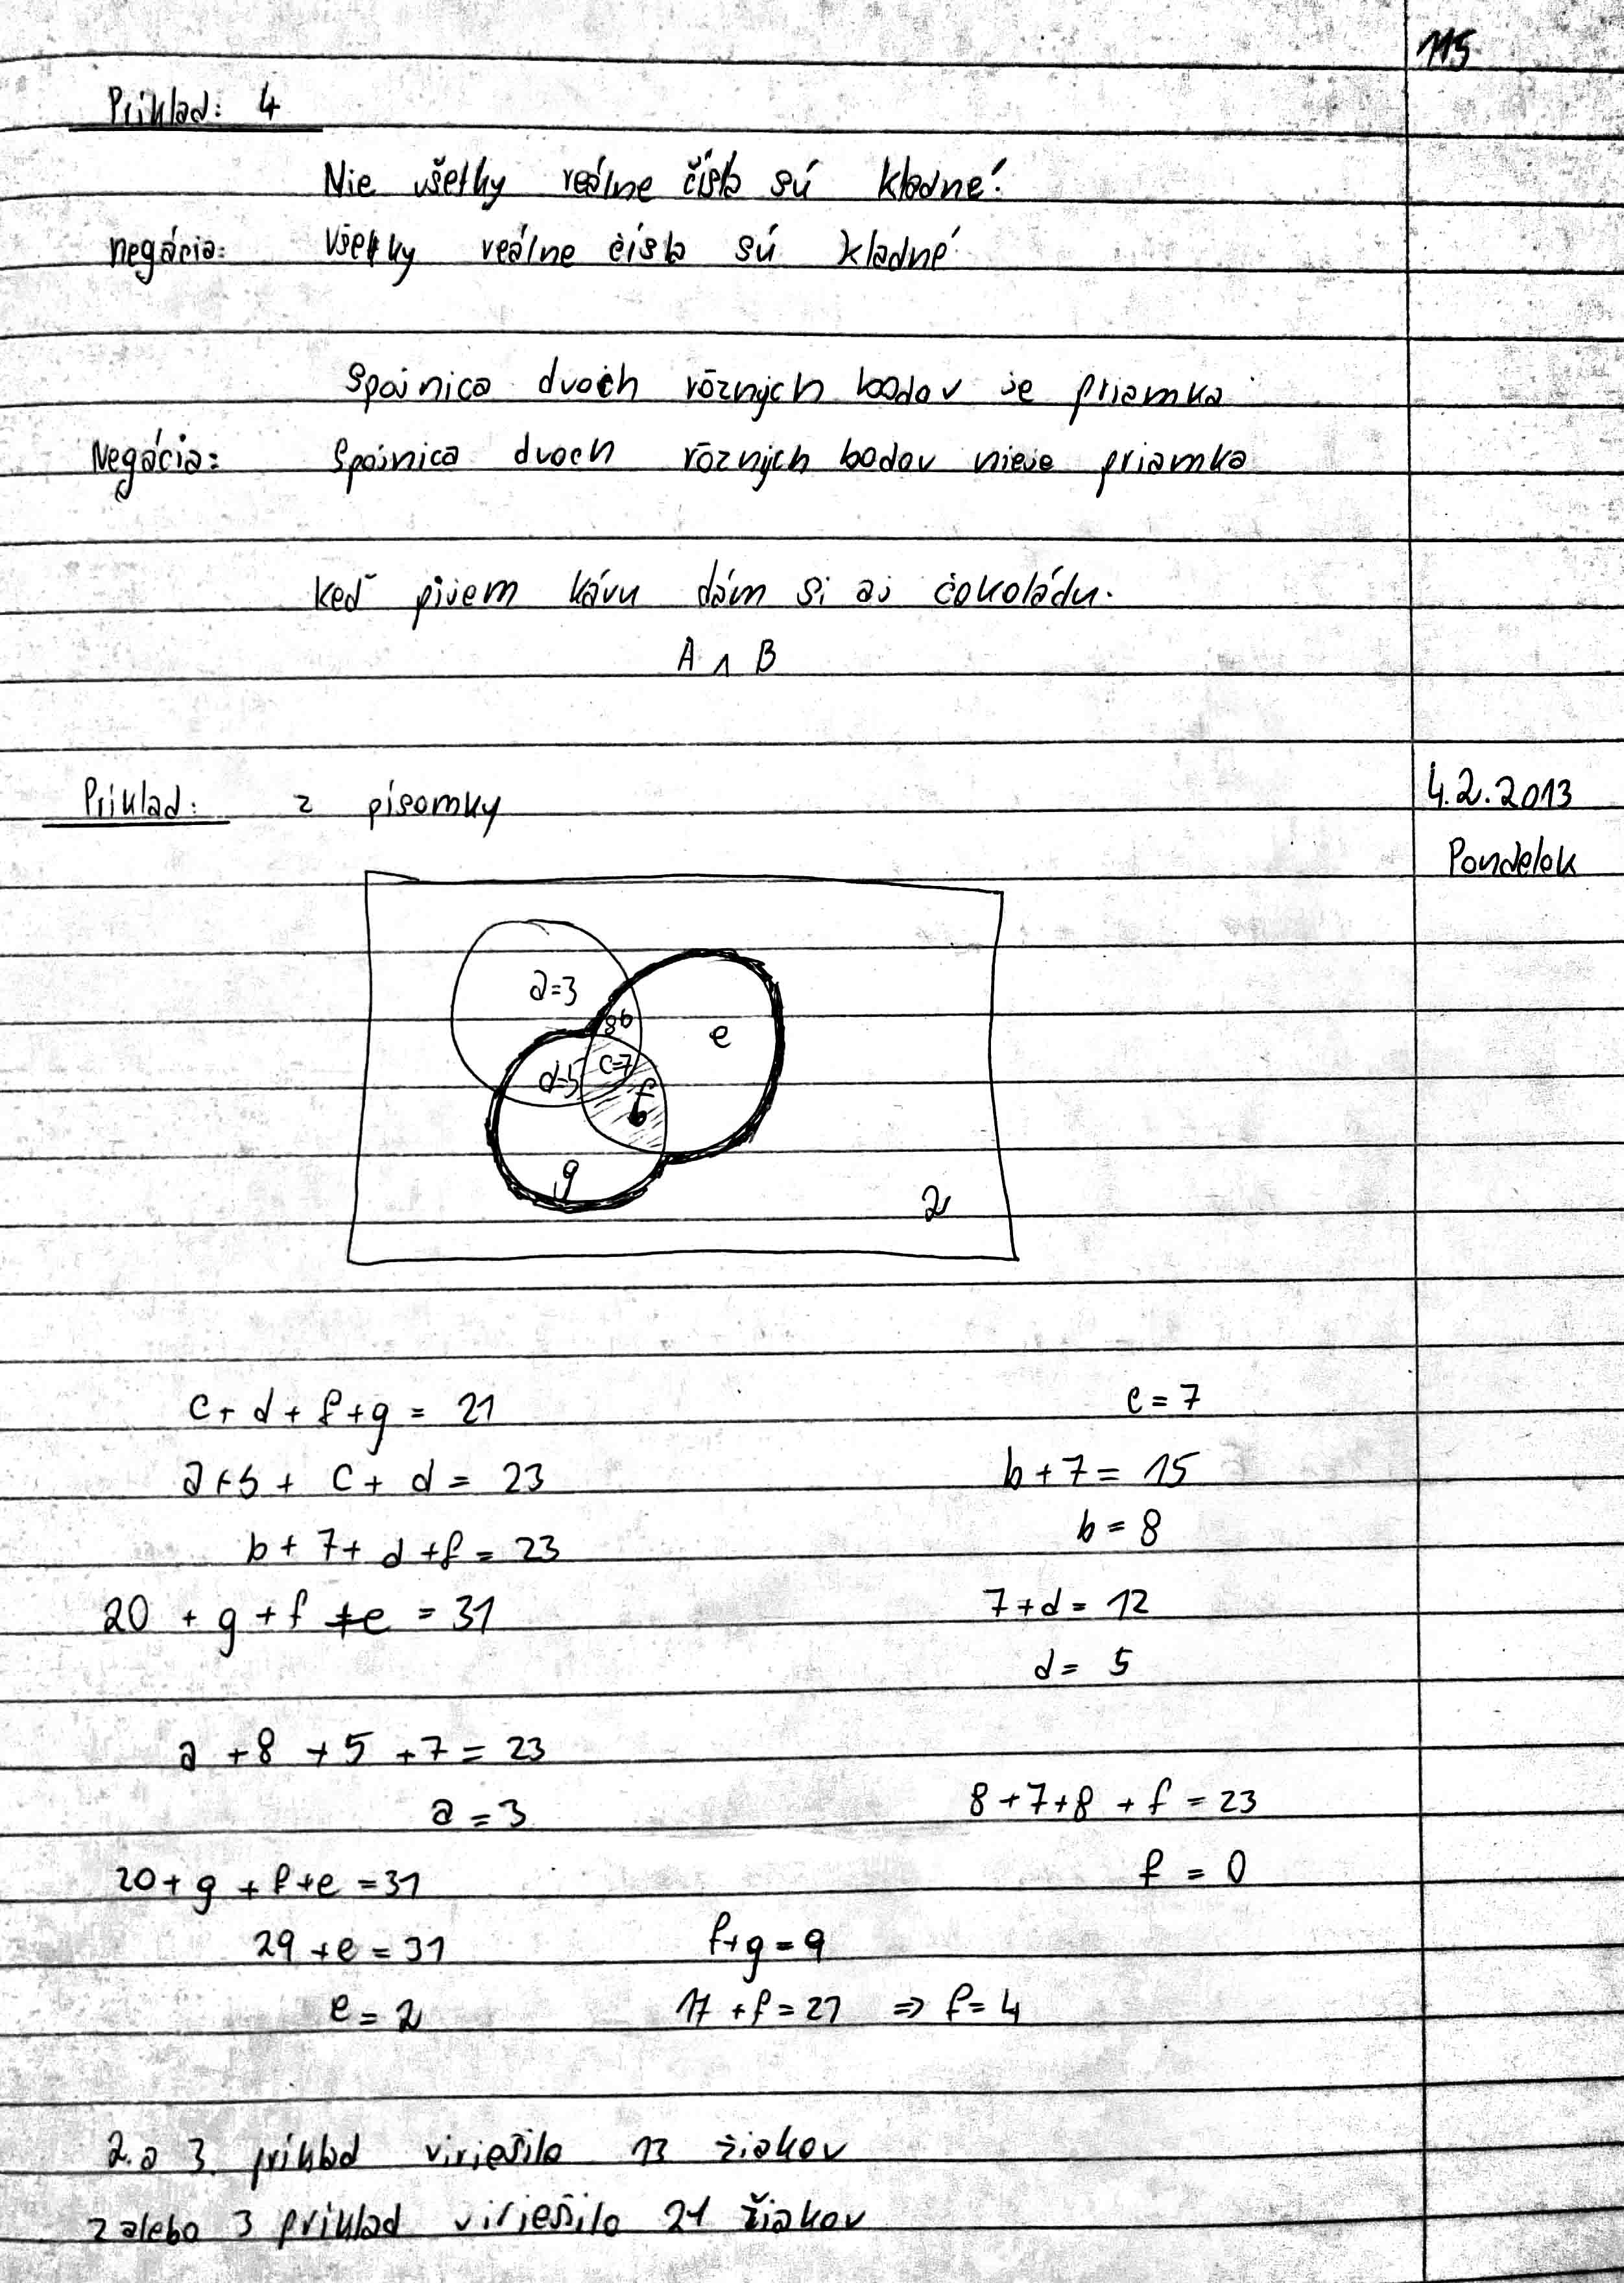 115
Priklad: 4
Nie všetky reálne čísla sú kladné.
negácia: Všetky reálne čísla sú kladné
Spojnica dvoch rôzných bodov je priamka
Negácia: Spojnica dvoch rôzných bodov nieje priamka
keď pijem kávu dám si aj čokoládu.
A ∧ B
Priklad: z písomky
4.2.2013
Pondelok
a=3
8b
e
c=7
d=5
f
g
2
c + d + f + g = 21
c = 7
a + b + c + d = 23
b + 7 = 15
b + 7 + d + f = 23
b = 8
20 + g + f + e = 31
7 + d = 12
d = 5
a + 8 + 5 + 7 = 23
a = 3
8 + 7 + 8 + f = 23
20 + g + f + e = 31
f = 0
29 + e = 31
f + g = 9
e = 2
17 + f = 21 ⇒ f = 4
2. a 3. príklad viriešilo 13 žiakov
2 alebo 3 príklad viriešilo 21 žiakov